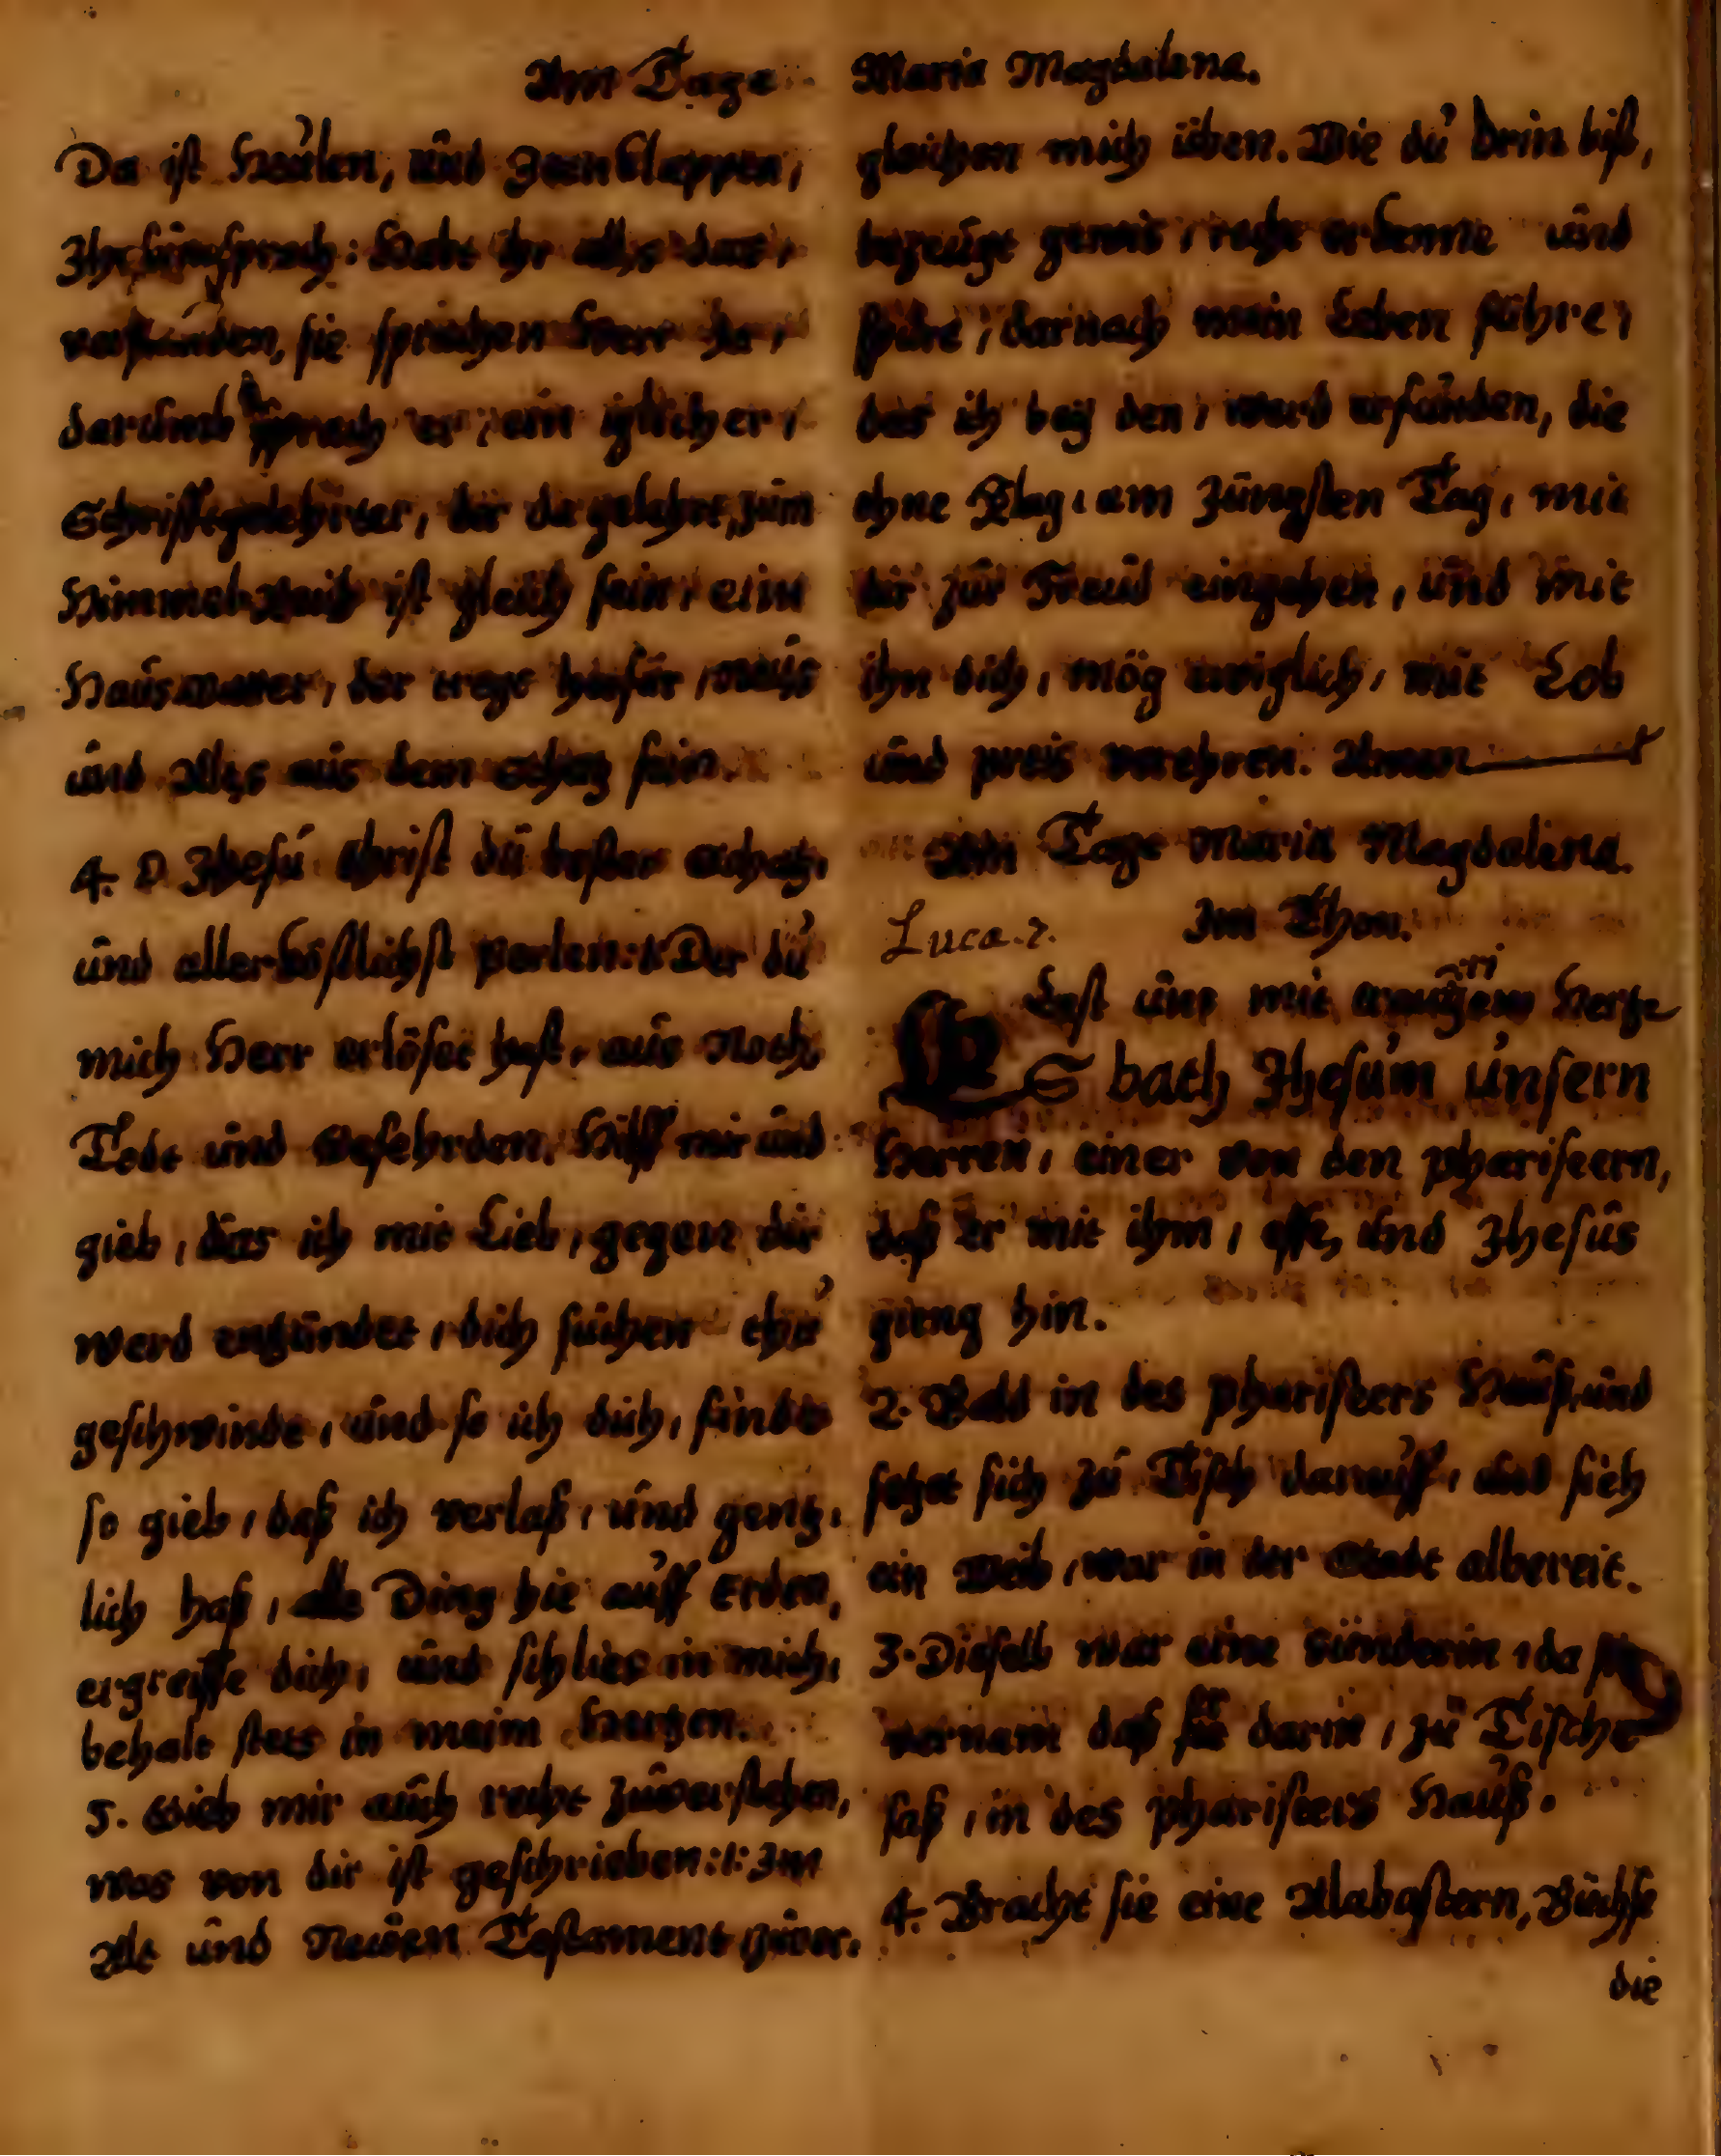 Am Tage Maria Magdalena.
Da ist Heulen, und Zeenklappen,
Jhesus sprach: Habt ihr alles das,
verstanden, sie sprachen Herr Ja,
darumb sprach er, ein iglicher,
Schrifftgelehrter, der da gelehrt, zum
Himmelreich ist gleich fein, eim
Hausvatter, der tregt herfür, Neus
und Alts aus dem Schatz sein.
4. O Jhesu Christ du bester Schatz,
und allerköstlichst Perlen :/: Der du
mich Herr erlöset hast, aus Noth,
Todt und Gefehrden, Hilff mir und
gieb, das ich mit Lieb, gegen dir
werd entzündet, dich suchen thu
geschwinde, und so ich dich, finde
so gieb, daß ich verlaß, und gentz,
lich haß, alle Ding hie auff Erden,
ergreiffe dich, und schlies in mich,
behalt stets in meim Hertzen.
5. Gieb mir auch recht zuverstehen,
was von dir ist geschrieben :/: Im
Alt und Neuen Testament zuvor,
gleichen mich üben. Wie du drin bist,
bezeugt gewis, recht erkenne und
spüre, darnach mein Leben führe,
das ich bey den, werd erfunden, die
ohne Klag, am Jüngsten Tag, mit
dir zur Freud eingehen, und mit
ihn dich, mög ewiglich, mit Lob
und preis verehren. Amen
Am Tage Maria Magdalena.
Luca. 7. Im Thon.
Last uns mit Hertze
ES bath Jhesum unsern
Herren, einer von den phariseern,
daß er mit ihm, esse, und Jhesus
gieng hin.
2. Bald in des phariseers Hauß, und
setzt sich zu Tisch darauff, und sieh
ein Weib, war in der Stadt albereit.
3. Dieselb war eine Sünderin, da sie
vernam daß er darin, zu Tische
saß, in des phariseers Hauß.
4. Bracht sie eine Alabastern, Büchse
die